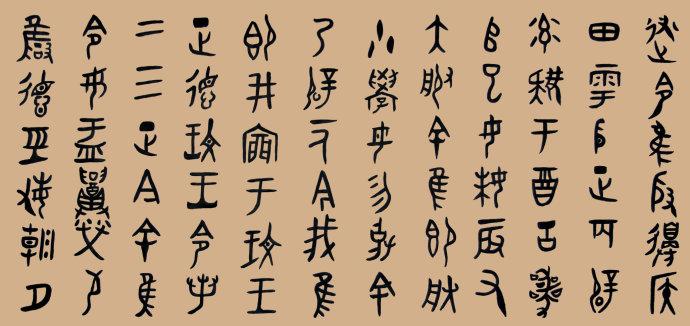 述令隹殷邊侯
田雩殷正百辟
率肄于酉古喪
𠂤巳女妹辰又
大服余隹即朕
小學女勿克余
乃辟一人今我隹
即井廩于玟王
正德玟王令
二三正今余隹
令女盂召榮苟
雝德巠敏朝夕